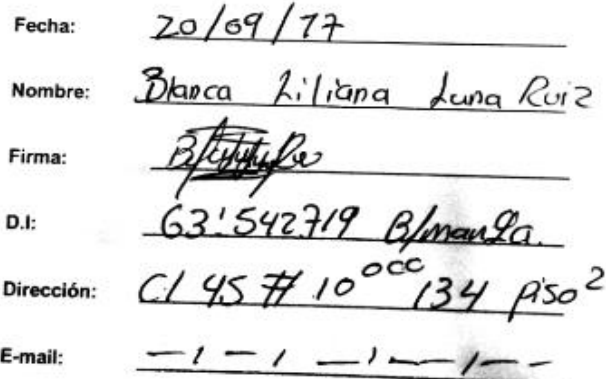 Fecha: 20/09/17
Nombre: Blanca Liliana Luna Ruiz
Firma:
D.I: 63'542719 B/manga.
Dirección: Cl 45 # 10 occ 134 piso 2
E-mail: — / — / — / — — / — —